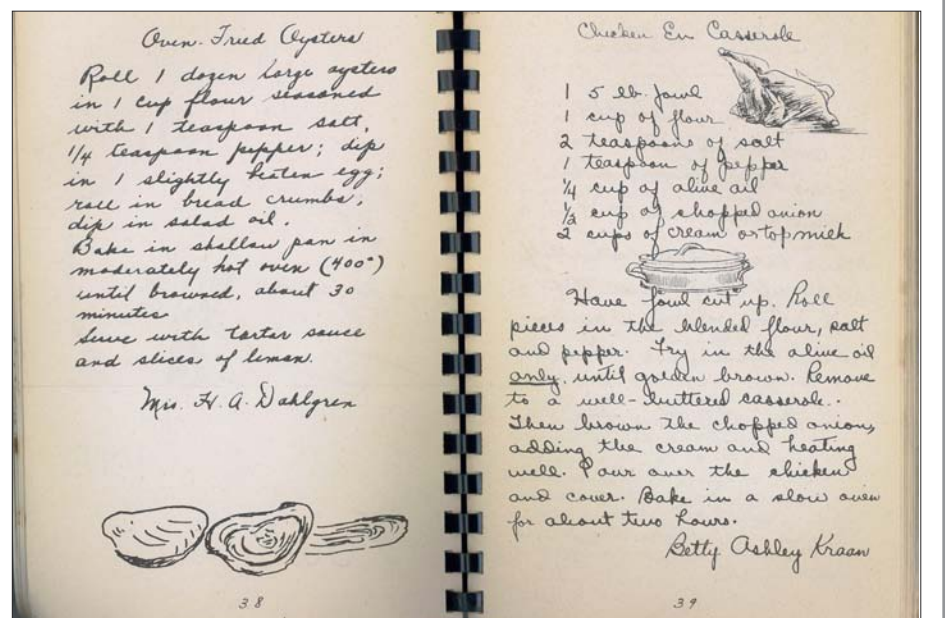 Oven-Fried Oysters
Roll 1 dozen large oysters
in 1 cup flour seasoned
with 1 teaspoon salt,
1/4 teaspoon pepper; dip
in 1 slightly beaten egg;
roll in bread crumbs,
dip in salad oil.
Bake in shallow pan in
moderately hot oven (400°)
until browned, about 30
minutes
Serve with tartar sauce
and slices of lemon.
Mrs. H. A. Dahlgren
38
Chicken En Casserole
1 5 lb. fowl
1 cup of flour
2 teaspoons of salt
1 teaspoon of pepper
1/4 cup of olive oil
1/2 cup of chopped onion
2 cups of cream or top milk
Have fowl cut up. Roll
pieces in the blended flour, salt
and pepper. Fry in the olive oil
only, until golden brown. Remove
to a well-buttered casserole.
Then brown the chopped onions,
adding the cream and heating
well. Pour over the chicken
and cover. Bake in a slow oven
for about two hours.
Betty Ashley Kraan
39